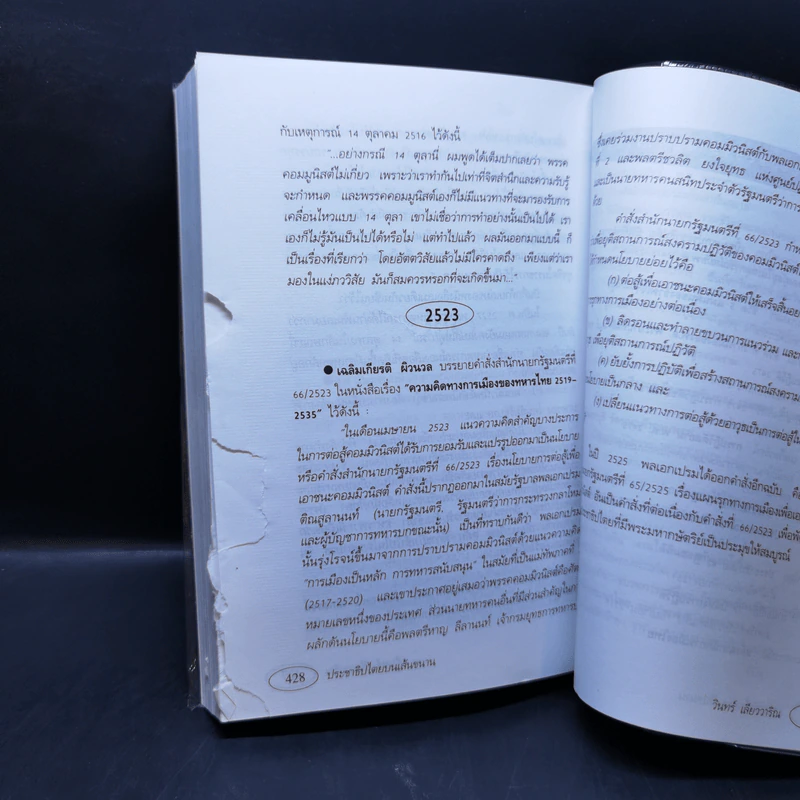 กับเหตุการณ์ 14 ตุลาคม 2516 ไว้ดังนี้
"...อย่างกรณี 14 ตุลานี่ ผมพูดได้เต็มปากเลยว่า พรรค
คอมมูนิสต์ไม่เกี่ยว เพราะว่าเราทำกันไปเท่าที่จิตสำนึกและความรับรู้
จะกำหนด และพรรคคอมมูนิสต์เองก็ไม่มีแนวทางที่จะมารองรับการ
เคลื่อนไหวแบบ 14 ตุลา เขาไม่เชื่อว่าการทำอย่างนั้นเป็นไปได้ เรา
เองก็ไม่รู้มันเป็นไปได้หรือไม่ แต่ทำไปแล้ว ผลมันออกมาแบบนี้ ก็
เป็นเรื่องที่เรียกว่า โดยอัตตวิสัยแล้วไม่มีใครคาดถึง เพียงแต่ว่าเรา
มองในแง่ภาววิสัย มันก็สมควรหรอกที่จะเกิดขึ้นมา...
2523
● เฉลิมเกียรติ ผิวนวล บรรยายคำสั่งสำนักนายกรัฐมนตรีที่
66/2523 ในหนังสือเรื่อง "ความคิดทางการเมืองของทหารไทย 2519-
2535" ไว้ดังนี้ :
"ในเดือนเมษายน 2523 แนวความคิดสำคัญบางประการ
ในการต่อสู้คอมมิวนิสต์ได้รับการยอมรับและแปรรูปออกมาเป็นนโยบาย
หรือคำสั่งสำนักนายกรัฐมนตรีที่ 66/2523 เรื่องนโยบายการต่อสู้เพื่อ
เอาชนะคอมมิวนิสต์ คำสั่งนี้ปรากฏออกมาในสมัยรัฐบาลพลเอกเปรม
ติณสูลานนท์ (นายกรัฐมนตรี, รัฐมนตรีว่าการกระทรวงกลาโหม
และผู้บัญชาการทหารบกขณะนั้น) เป็นที่ทราบกันดีว่า พลเอกเปรม
นั้นรุ่งโรจน์ขึ้นมาจากการปราบปรามคอมมิวนิสต์ด้วยแนวความคิด
"การเมืองเป็นหลัก การทหารสนับสนุน" ในสมัยที่เป็นแม่ทัพภาคที่
(2517-2520) และเขาประกาศอยู่เสมอว่าพรรคคอมมิวนิสต์คือศัตรู
หมายเลขหนึ่งของประเทศ ส่วนนายทหารคนอื่นที่มีส่วนสำคัญในการ
ผลักดันนโยบายนี้คือพลตรีหาญ ลีลานนท์ เจ้ากรมยุทธการทหารบก
428 ประชาธิปไตยบนเส้นขนาน
ซึ่งเคยร่วมงานปราบปรามคอมมิวนิสต์กับพลเอก
ที่ 2 และพลตรีชวลิต ยงใจยุทธ แห่งศูนย์ปฏิ
และเป็นนายทหารคนสนิทประจำตัวรัฐมนตรีว่าการ
ด้วย
คำสั่งสำนักนายกรัฐมนตรีที่ 66/2523 กำห
เพื่อยุติสถานการณ์สงครามปฏิวัติของคอมมิวนิสต์
กำหนดนโยบายย่อยไว้คือ
(ก) ต่อสู้เพื่อเอาชนะคอมมิวนิสต์ให้เสร็จสิ้นอย่
รุกทางการเมืองอย่างต่อเนื่อง
(ข) ลิดรอนและทำลายขบวนการแนวร่วม และ
เพื่อยุติสถานการณ์ปฏิวัติ
(ค) ยับยั้งการปฏิบัติเพื่อสร้างสถานการณ์สงคราม
โยบายเป็นกลาง และ
(ง) เปลี่ยนแนวทางการต่อสู้ด้วยอาวุธเป็นการต่อสู้ใน
ในปี 2525 พลเอกเปรมได้ออกคำสั่งอีกฉบับ คื
กรัฐมนตรีที่ 65/2525 เรื่องแผนรุกทางการเมืองเพื่อเอ
อันเป็นคำสั่งที่ต่อเนื่องกับคำสั่งที่ 66/2523 เพื่อพั
ธิปไตยที่มีพระมหากษัตริย์เป็นประมุขให้สมบูรณ์
วินทร์ เลียววาริณ